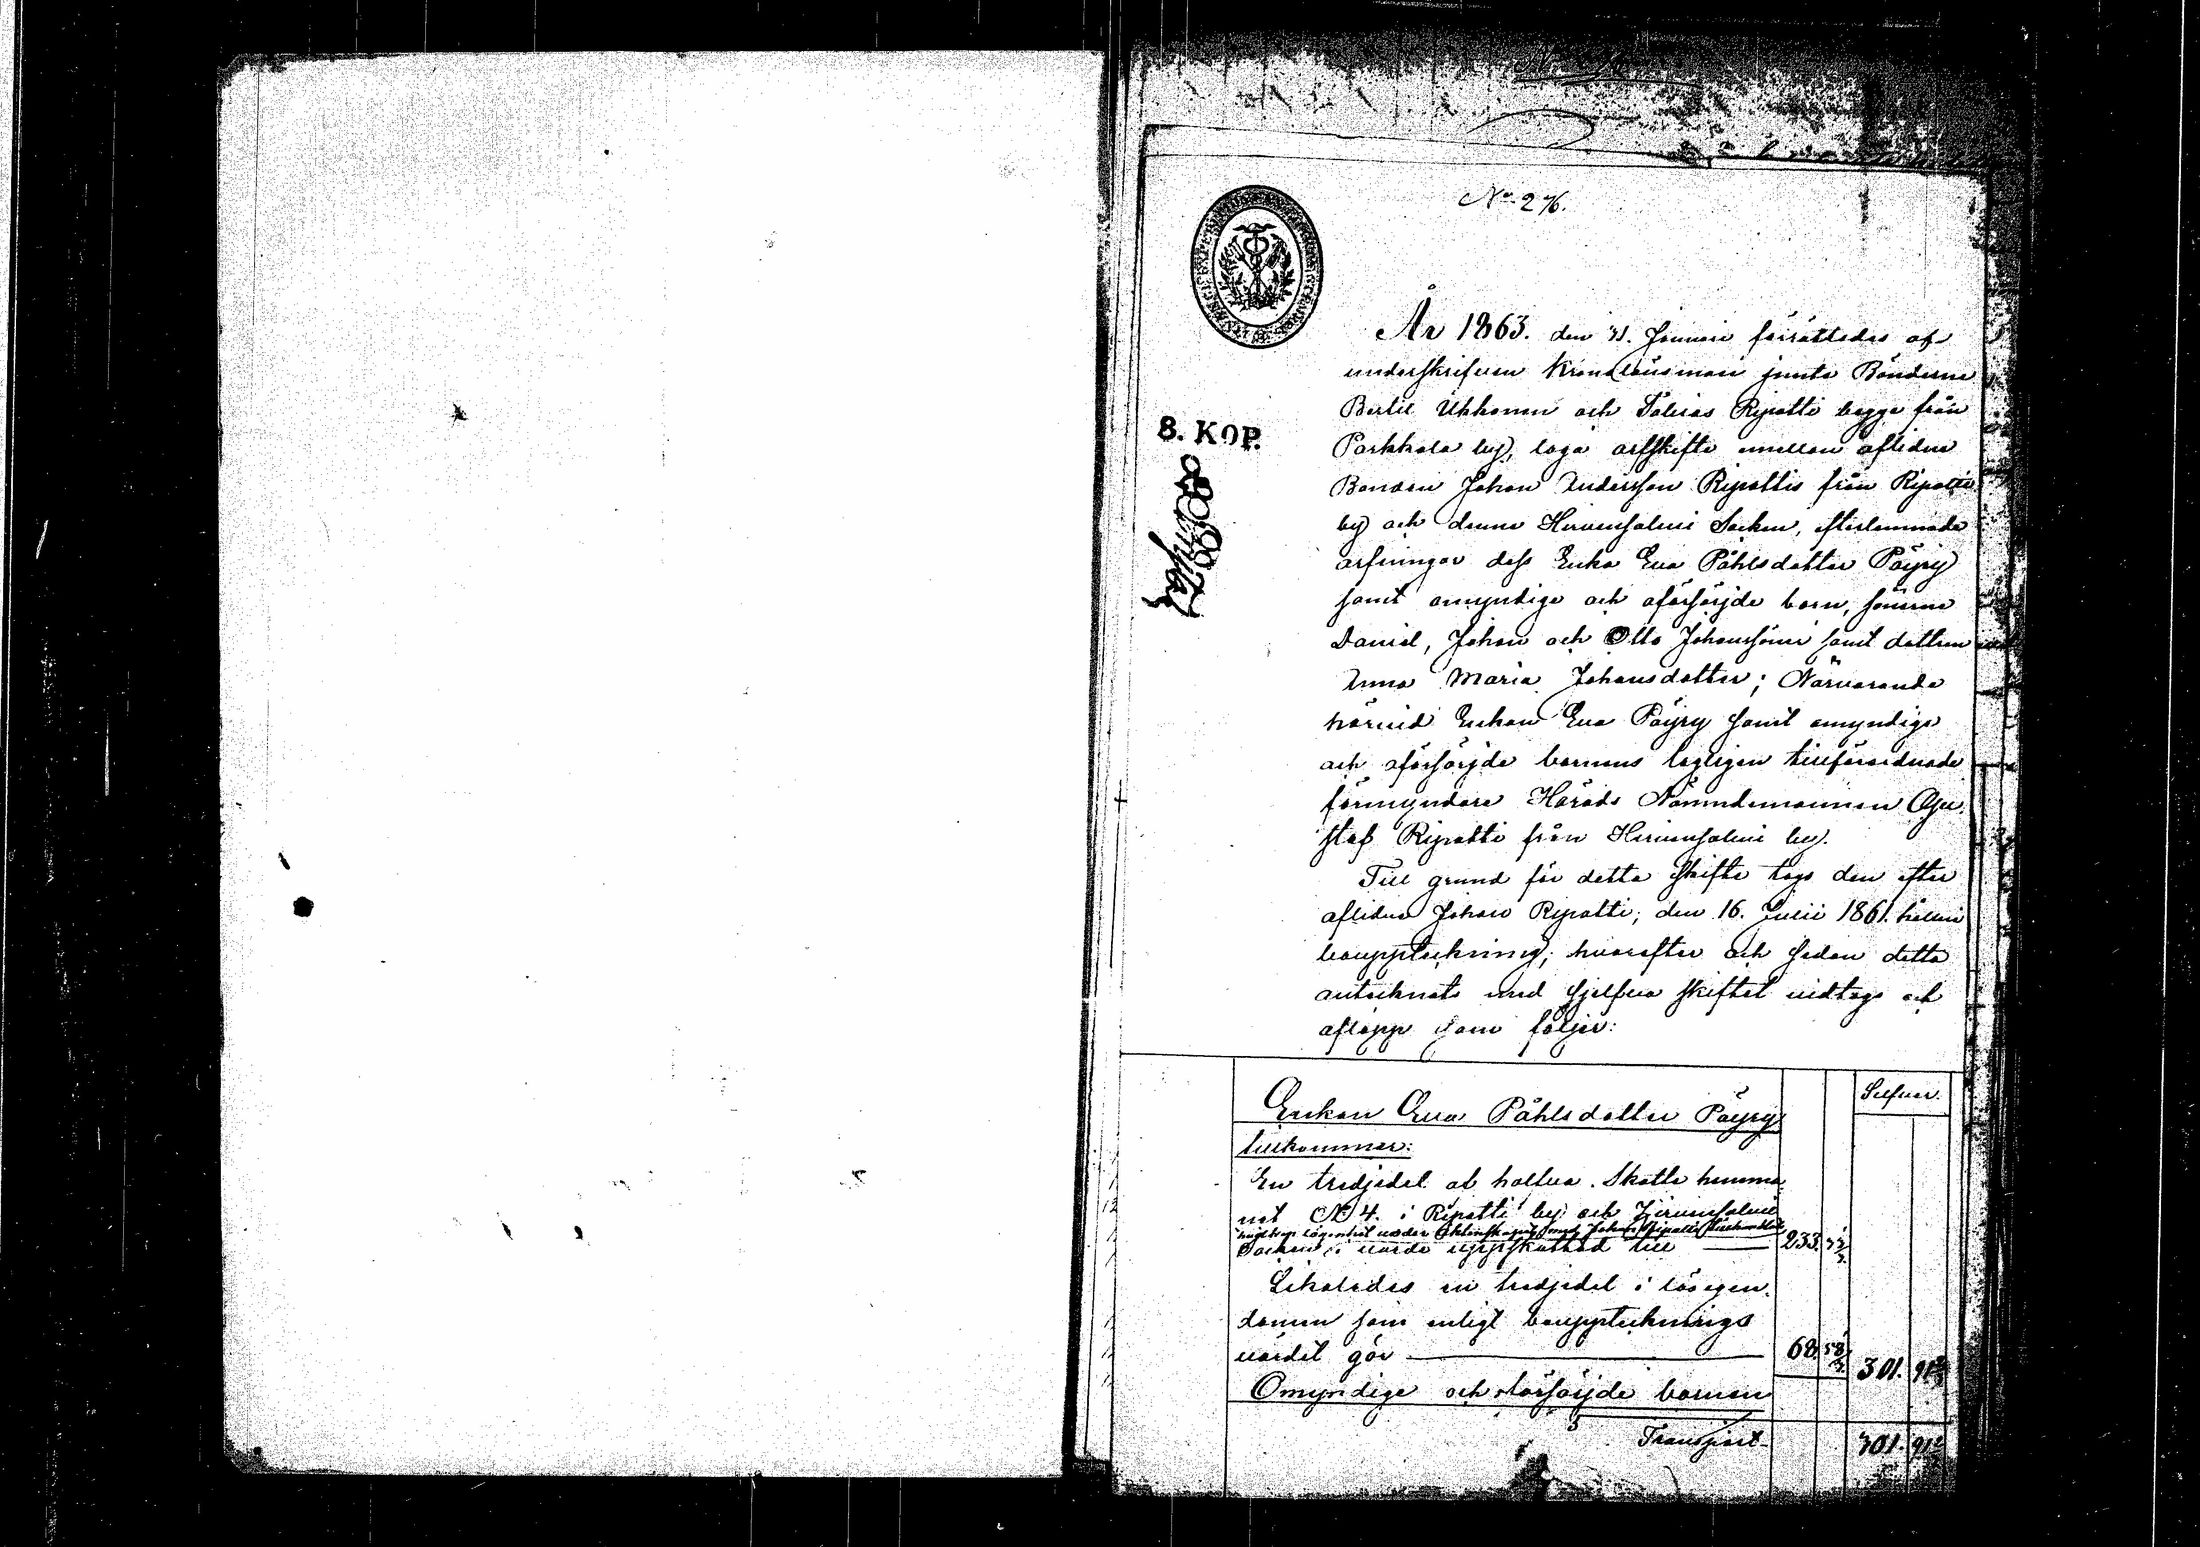 No 276.
År 1863. den 31. Januari förrättades af
underskrifven Kronolänsman jemte Bönderne
Bertil Ukkonen och Tobias Ripatti begge från
Parkkala by, laga arfskifte mellan aflidne
Bonden Johan Andersson Ripattis från Ripatti
by och denne Hirvensalmi Socken, efterlemnade
arfvingar dess Enka Eva Påhlsdotter Päyry
samt omyndige och oförsörjde barn, sönerne
Daniel, Johan och Otto Johanssöner samt dottren
Anna Maria Johansdotter; Närvarande
härvid Enkan Eva Päyry samt omyndige
och oförsörjde barnens lagligen tillförordnade
förmyndare Härads Nämndemannen Gu
staf Ripatti från Hirvensalmi by.
Till grund för detta skifte togs den efter
aflidne Johan Ripatti, den 16. Julii 1861. hållne
bouppteckning, hvarefter och sedan detta
antecknats med sjelfva skiftet vidtogs och
aflopp som följer:
8. KOP.
Silfver.
Enkan Eva Påhlsdotter Päyry
tillkommer:
En tredjedel af halfva Skatte hemma
net No 4. i Ripatti by och Hirvensalmi
Socken, i värde uppskattad till 233. 33 1/3
Likaledes en tredjedel i lösegen
domen som enligt bouppteknings
värdet gör 68 58 1/3 301. 91 2/3
Omyndige och oförsörjde barnen
Transport 301. 91 2/3